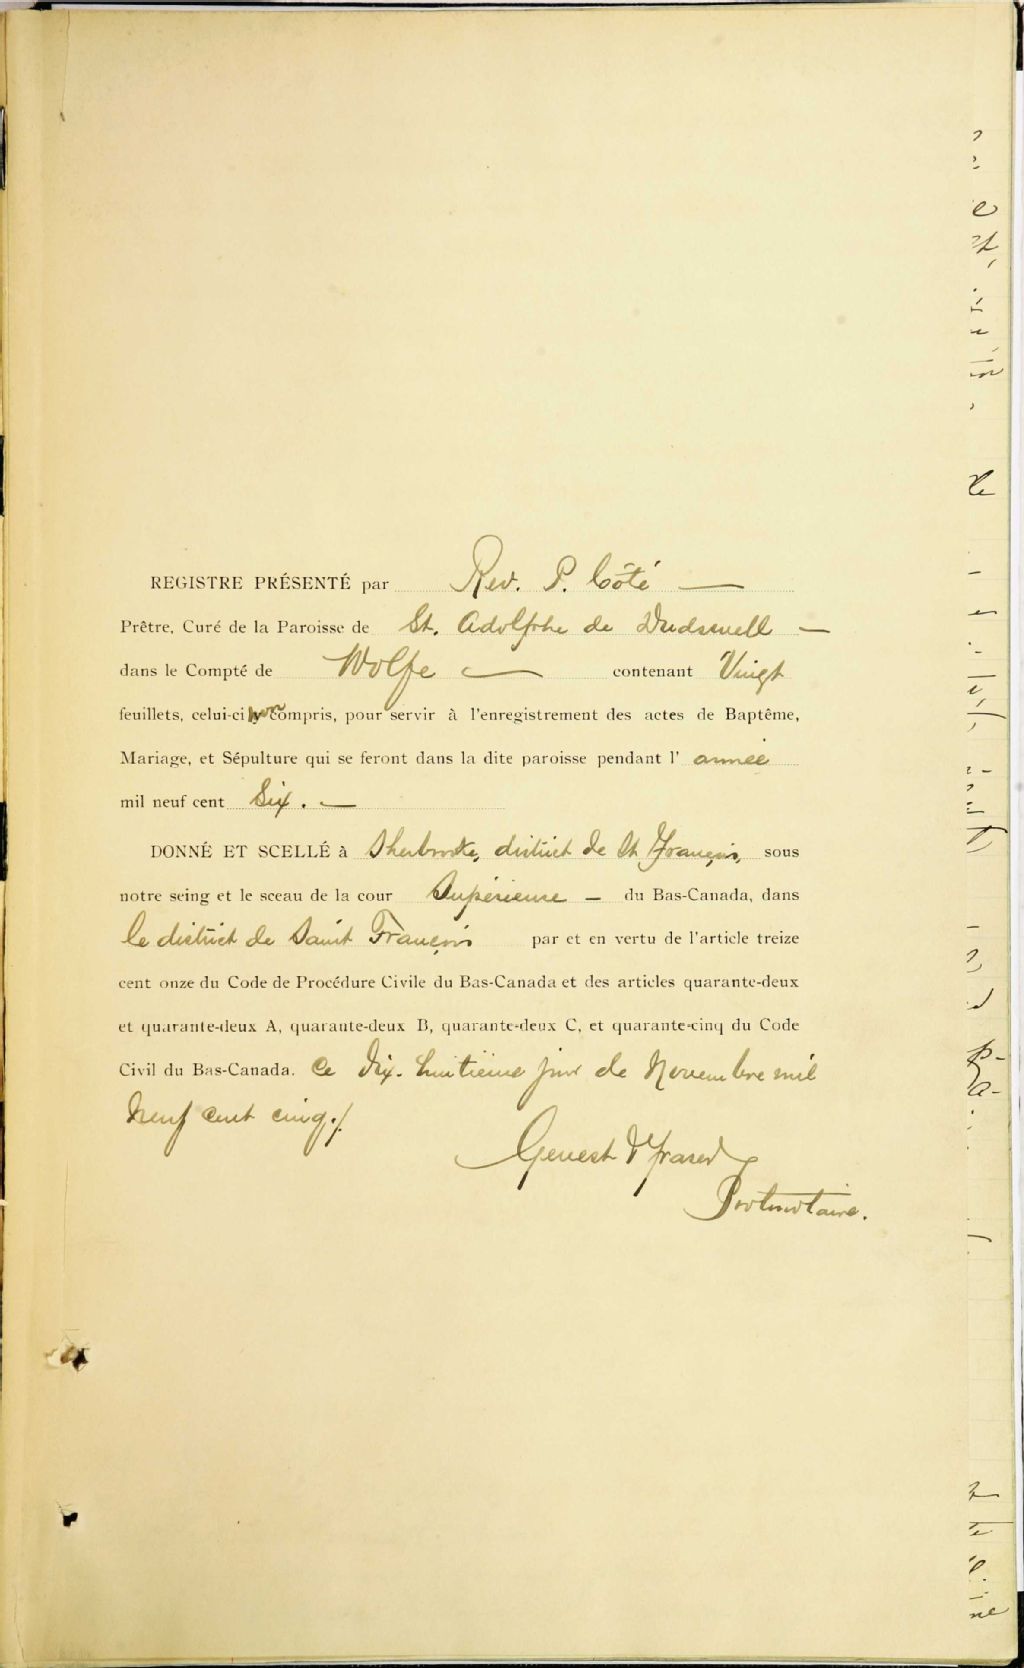 REGISTRE PRÉSENTÉ par Rev. P. Côté —
Prêtre, Curé de la Paroisse de St. Adolphe de Dudswell —
dans le Compté de Wolfe — contenant Vingt
feuillets, celui-ci non compris, pour servir à l'enregistrement des actes de Baptême,
Mariage, et Sépulture qui se feront dans la dite paroisse pendant l' année
mil neuf cent Six. —
DONNÉ ET SCELLÉ à Sherbrooke, district de St François, sous
notre seing et le sceau de la cour Supérieure — du Bas-Canada, dans
le district de Saint François par et en vertu de l'article treize
cent onze du Code de Procédure Civile du Bas-Canada et des articles quarante-deux
et quarante-deux A, quarante-deux B, quarante-deux C, et quarante-cinq du Code
Civil du Bas-Canada. Ce dix-huitième jour de Novembre mil
neuf cent cinq./
Genest & Fraser
Protonotaire.